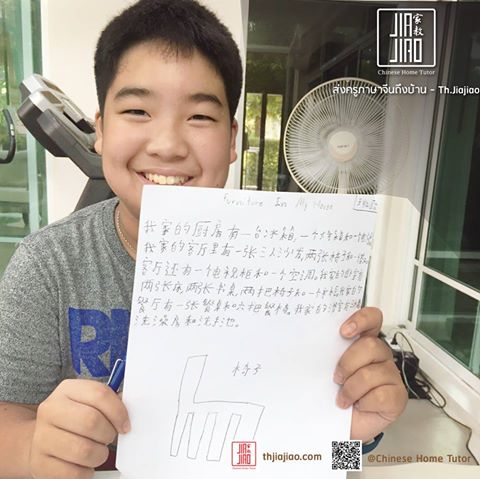 JIA 家
JIAO 教
Chinese Home Tutor
ส่งครูภาษาจีนถึงบ้าน - Th.Jiajiao
Furniture In My House
我家的厨房有一台冰箱,一个烤箱和一个
我家的客厅里有一张三人沙发,两张椅子和一
客厅还有一个电视柜和一个空调。我家的卧室有
两张床,两张书桌,两把椅子和一个
餐厅有一张餐桌和六把餐椅。我家的
洗澡房和洗手池。
椅子
JIA
JIAO
thjiajiao.com
@Chinese Home Tutor